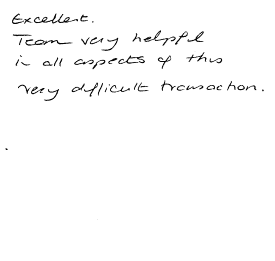 Excellent.
Team very helpful
in all aspects of this
very difficult transaction.